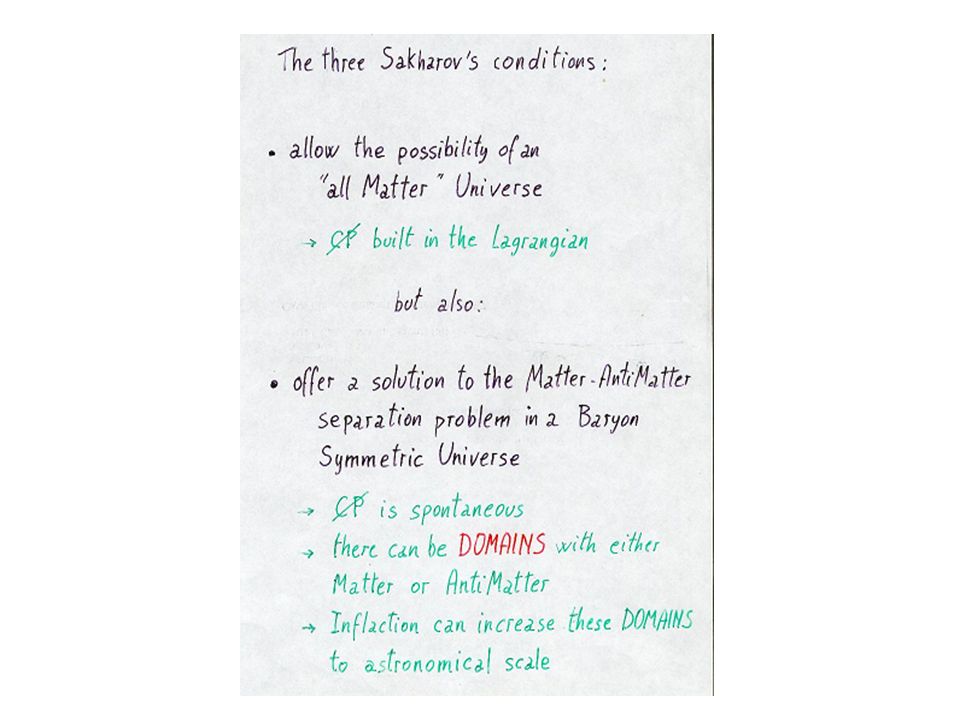 The three Sakharov's conditions:
• allow the possibility of an
"all Matter" Universe
→ C̸P̸ built in the Lagrangian
but also:
• offer a solution to the Matter-AntiMatter
separation problem in a Baryon
Symmetric Universe
→ C̸P̸ is spontaneous
→ there can be DOMAINS with either
Matter or AntiMatter
→ Inflaction can increase these DOMAINS
to astronomical scale